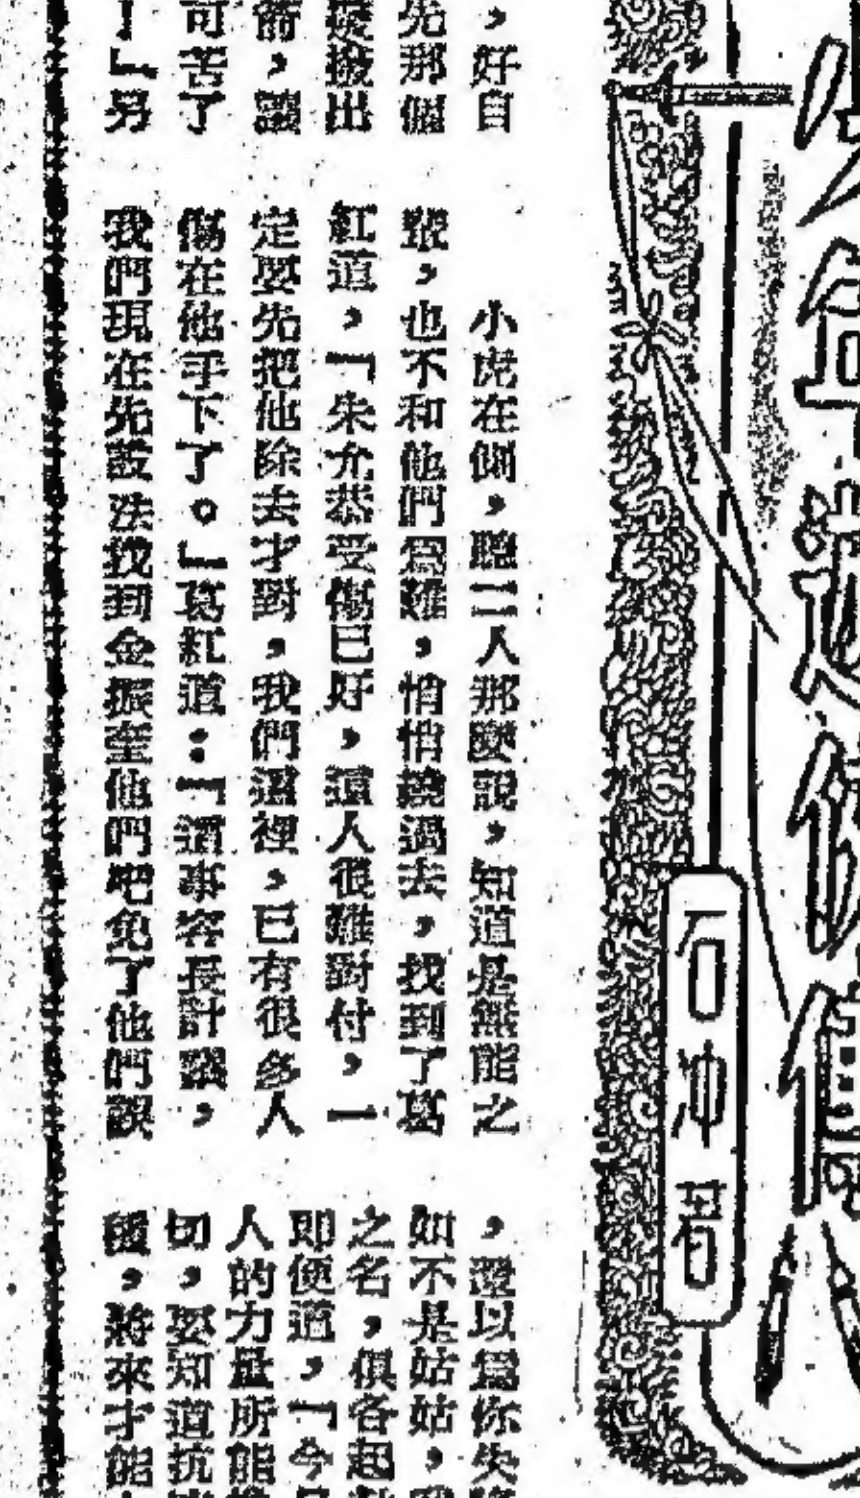 少年遊俠傳
石冲著
，好自
先那個
撥出
可苦了
！」另
小虎在側，聽二人那麼說，知道是無能之
輩，也不和他們爲難，悄悄繞過去，找到了葛
紅道，「朱允恭受傷已好，這人很難對付，一
定要先把他除去才對，我們這裡，已有很多人
傷在他手下了。」葛紅道：「這事容長計議，
我們現在先設法找到金振奎他們吧免了他們誤
，還以爲你失
如不是姑姑，
之名，俱各起
即便道，「今
人的力量所能
切，要知道抗
援，將來才能